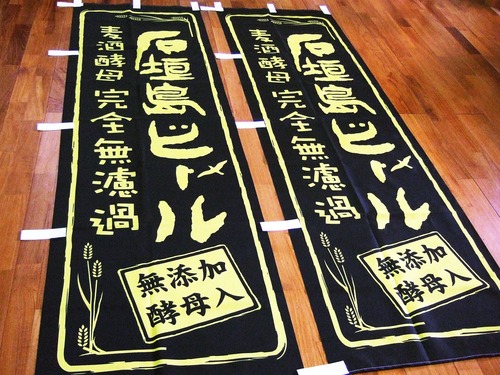 石垣島ビール
麦酒酵母 完全無濾過
無添加
酵母入
石垣島ビール
麦酒酵母 完全無濾過
無添加
酵母入